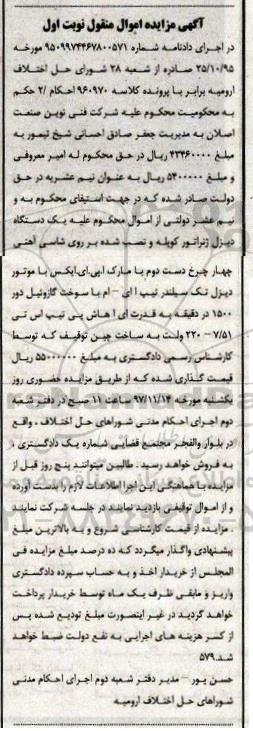 آگهی مزایده اموال منقول نوبت اول
در اجرای دادنامه شماره ۹۵۰۹۹۷۴۴۶۷۸۰۰۵۷۱ مورخه
۲۵/۱۰/۹۵ صادره از شعبه ۲۸ شورای حل اختلاف
ارومیه برابر با پرونده کلاسه ۹۶۰۹۷۰ احکام /۲ حکم
به محکومیت محکوم علیه شرکت فنی نوین صنعت
اصلان به مدیریت جعفر صادق احسانی شیخ تیمور به
مبلغ ۴۳۴۶۰۰۰۰ ریال در حق محکوم له امیر معروفی
و مبلغ ۵۴۰۰۰۰۰ ریال به عنوان نیم عشریه در حق
دولت صادر شده که در جهت استیفای محکوم به و
نیم عشر دولتی از اموال محکوم علیه یک دستگاه
دیزل ژنراتور کوپله و نصب شده بر روی شاسی آهنی
چهار چرخ دست دوم با مارک ای.ای.ایکس با موتور
دیزل تک سیلندر تیپ ا ای – ام با سوخت گازوئیل دور
۱۵۰۰ در دقیقه به قدرت ای ا هاش پی تیپ اس تی
۷/۵۱ – ۲۲۰ ولت به ساخت چین توقیف که توسط
کارشناس رسمی دادگستری به مبلغ ۵۵۰۰۰۰۰۰ ریال
قیمت گذاری شده که از طریق مزایده حضوری روز
یکشنبه مورخه ۹۷/۱۱/۱۴ ساعت ۱۱ صبح در دفتر شعبه
دوم اجرای احکام مدنی شوراهای حل اختلاف ، واقع
در بلوار والفجر مجتمع قضایی شماره یک دادگستری ،
به فروش خواهد رسید . طالبین میتوانند پنج روز قبل از
مزایده با هماهنگی این اجرا اطلاعات لازم را بدست آورده
و از اموال توقیفی بازدید نمایند در جلسه شرکت نمایند
. مزایده از قیمت کارشناسی شروع و به بالاترین مبلغ
پیشنهادی واگذار میگردد که ده درصد مبلغ مزایده فی
المجلس از خریدار اخذ و به حساب سپرده دادگستری
واریز و مابقی ظرف یک ماه توسط خریدار پرداخت
خواهد گردید در غیر اینصورت مبلغ تودیع شده پس
از کسر هزینه های اجرایی به نفع دولت ضبط خواهد
شد.۵۷۹
حسن پور – مدیر دفتر شعبه دوم اجرای احکام مدنی
شوراهای حل اختلاف ارومیه